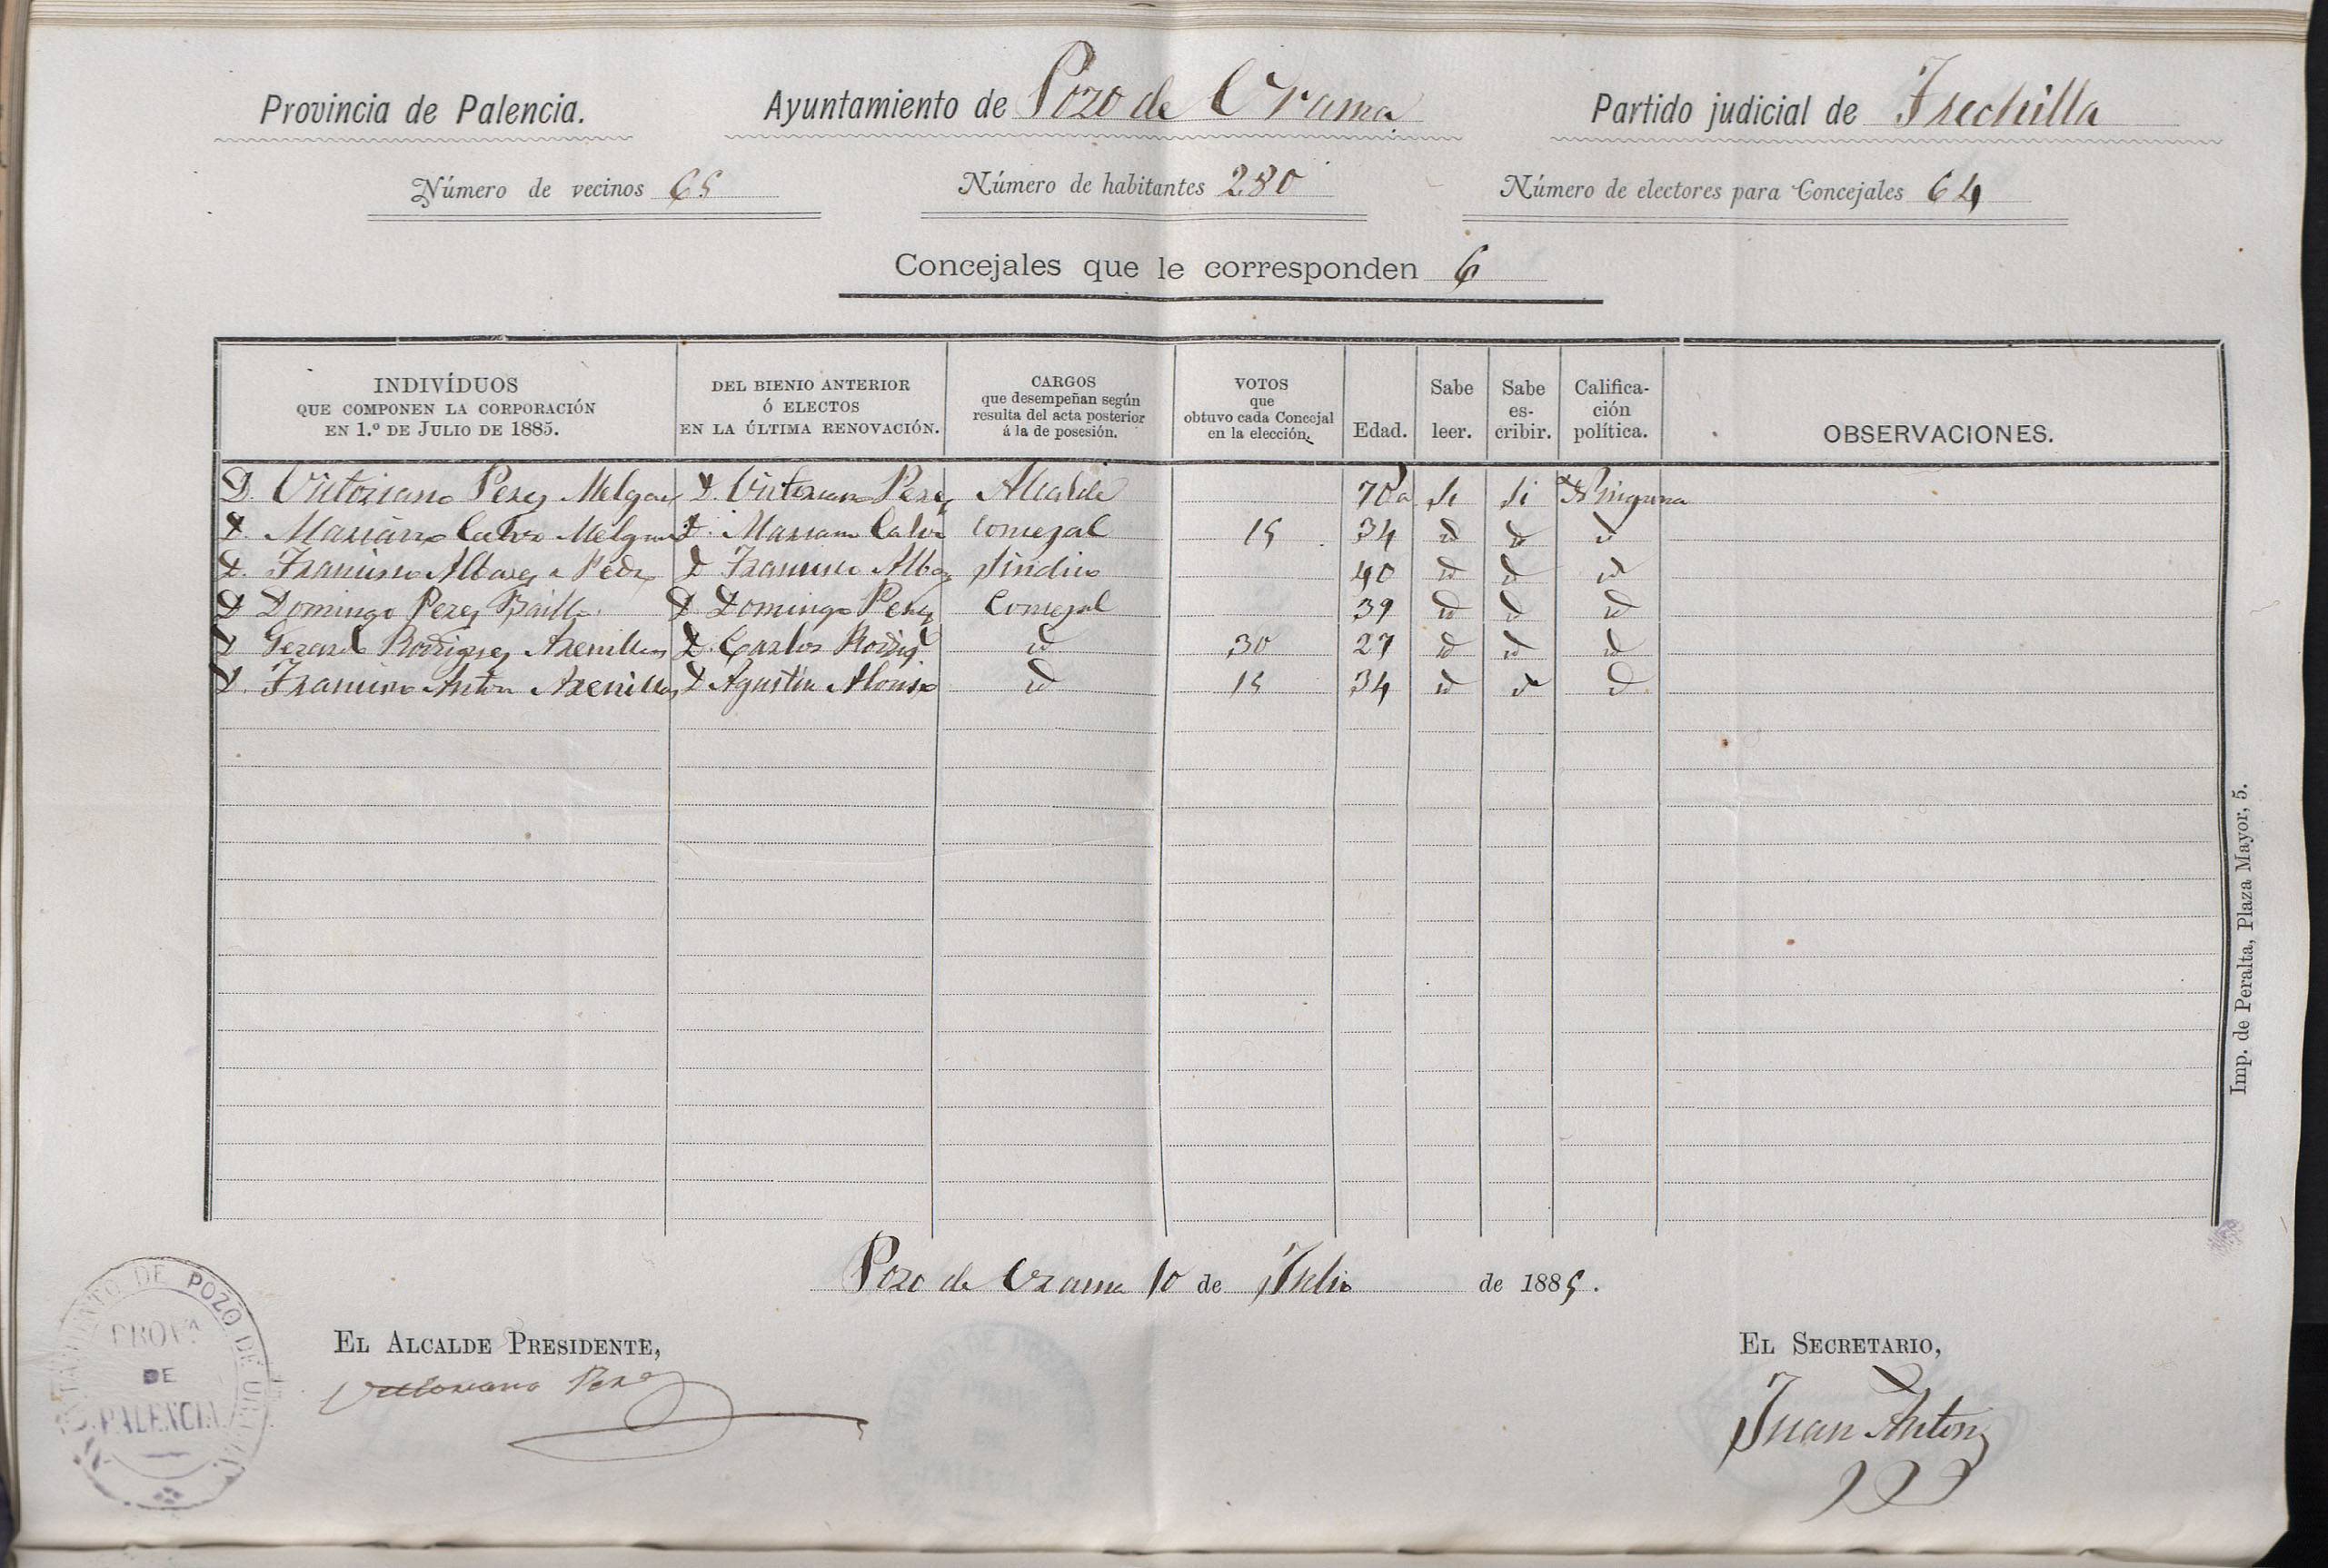 Provincia de Palencia. Ayuntamiento de Pozo de Urama Partido judicial de Frechilla
Número de vecinos 65 Número de habitantes 280 Número de electores para Concejales 64
Concejales que le corresponden 6
INDIVÍDUOS QUE COMPONEN LA CORPORACIÓN EN 1.º DE JULIO DE 1885.
DEL BIENIO ANTERIOR Ó ELECTOS EN LA ÚLTIMA RENOVACIÓN.
CARGOS que desempeñan según resulta del acta posterior á la de posesión.
VOTOS que obtuvo cada Concejal en la elección.
Edad.
Sabe leer.
Sabe es-cribir.
Califica-ción política.
OBSERVACIONES.
D. Victoriano Perez Melgar D. Victoriano Perez Alcalde 70 a Si Si Ninguna
D. Mariano Calvo Melgar D. Mariano Calvo Concejal 15 34 id id id
D. Francisco Albarez D Francisco Alb Sindico 40 id id id
D Domingo Perez D Domingo Perez Concejal 39 id id id
D Gerard Rodriguez Arenillas D. Carlos Rodrig id 30 27 id id id
D. Francisco Anton Arenillas D Agustin Alonso id 15 34 id id id
Imp. de Peralta, Plaza Mayor, 5.
Pozo de Urama 10 de Julio de 1885.
EL ALCALDE PRESIDENTE, EL SECRETARIO,
Victoriano Perez Juan Anton
POZO DE
PROVA
DE
PALENCIA